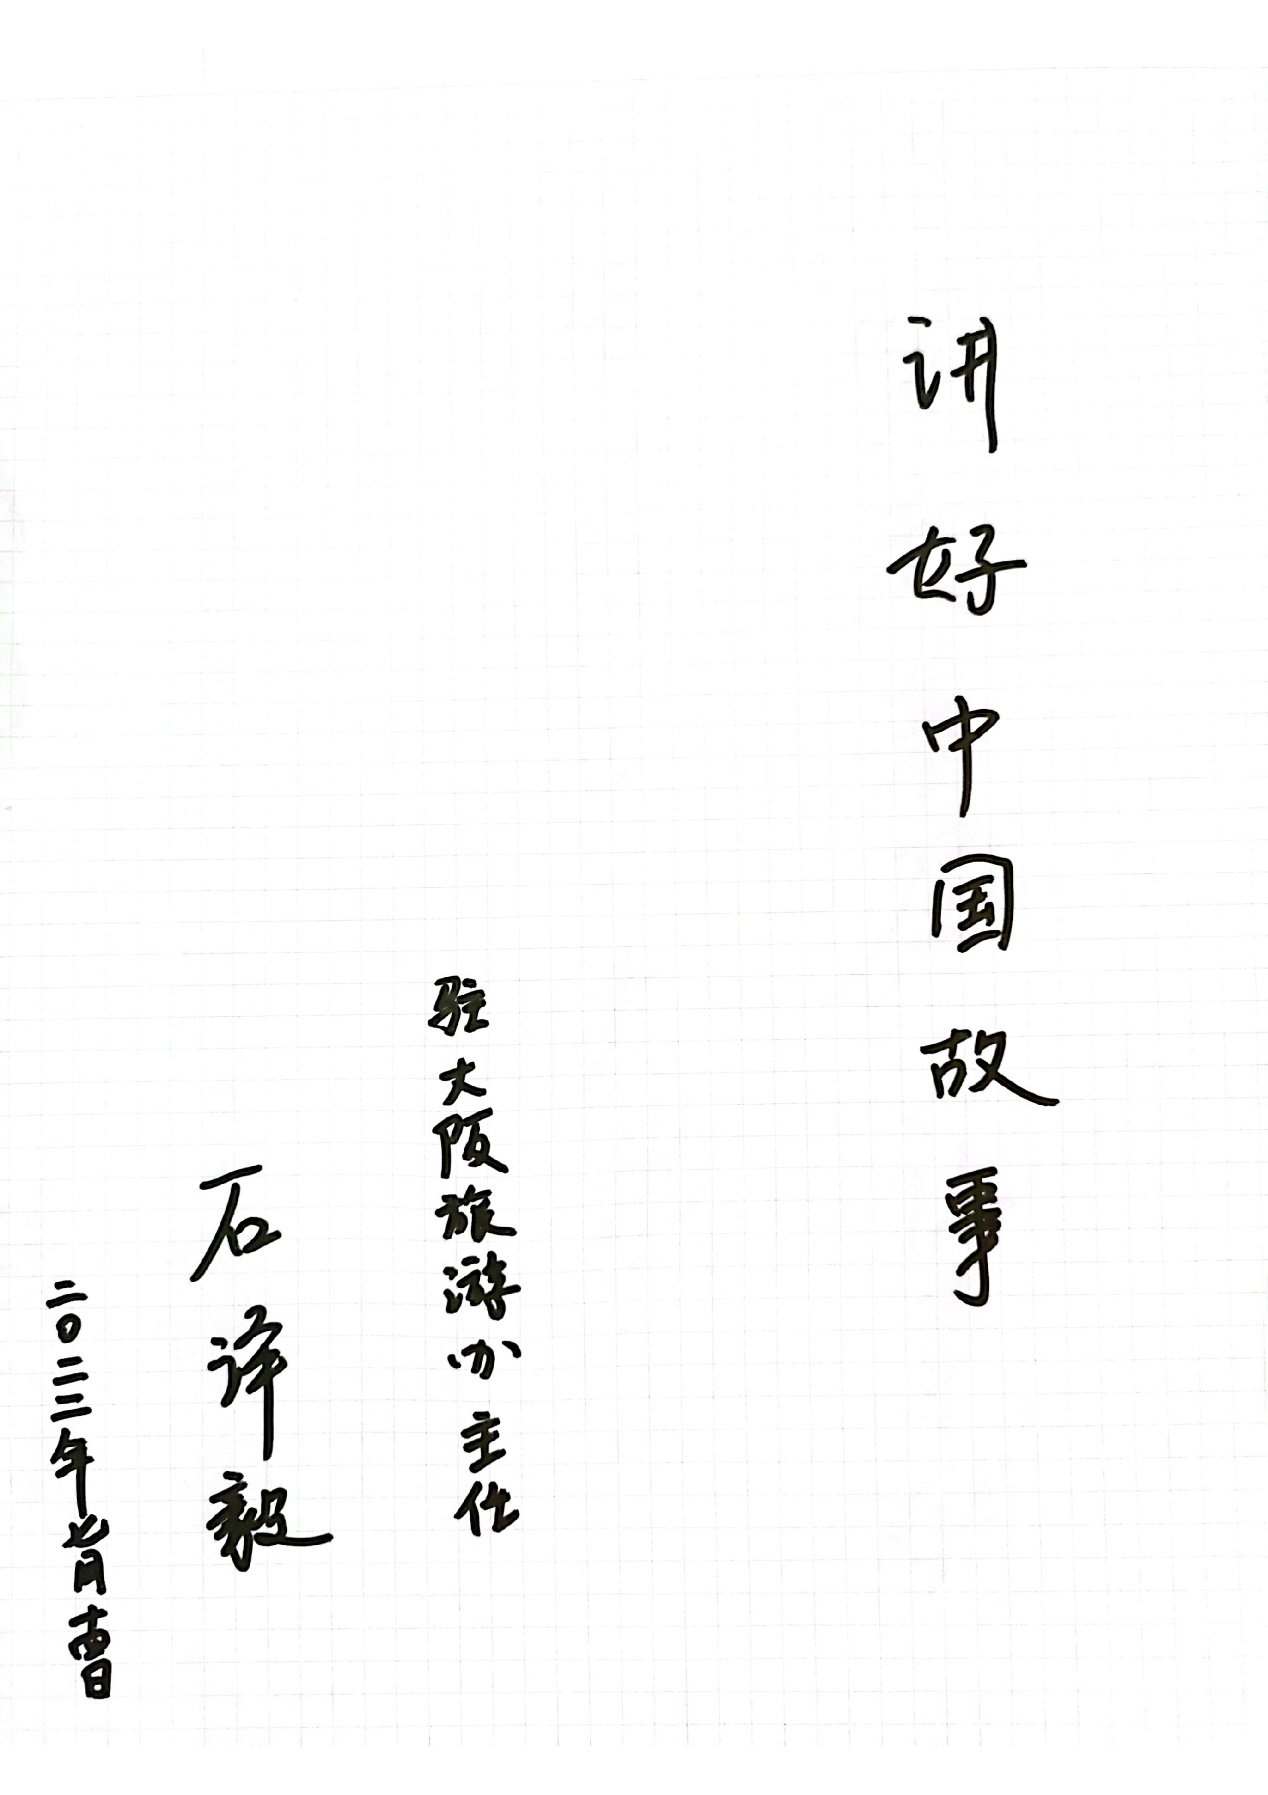 讲好中国故事
驻大阪旅游办主任
石泽毅
二〇二二年七月十四日